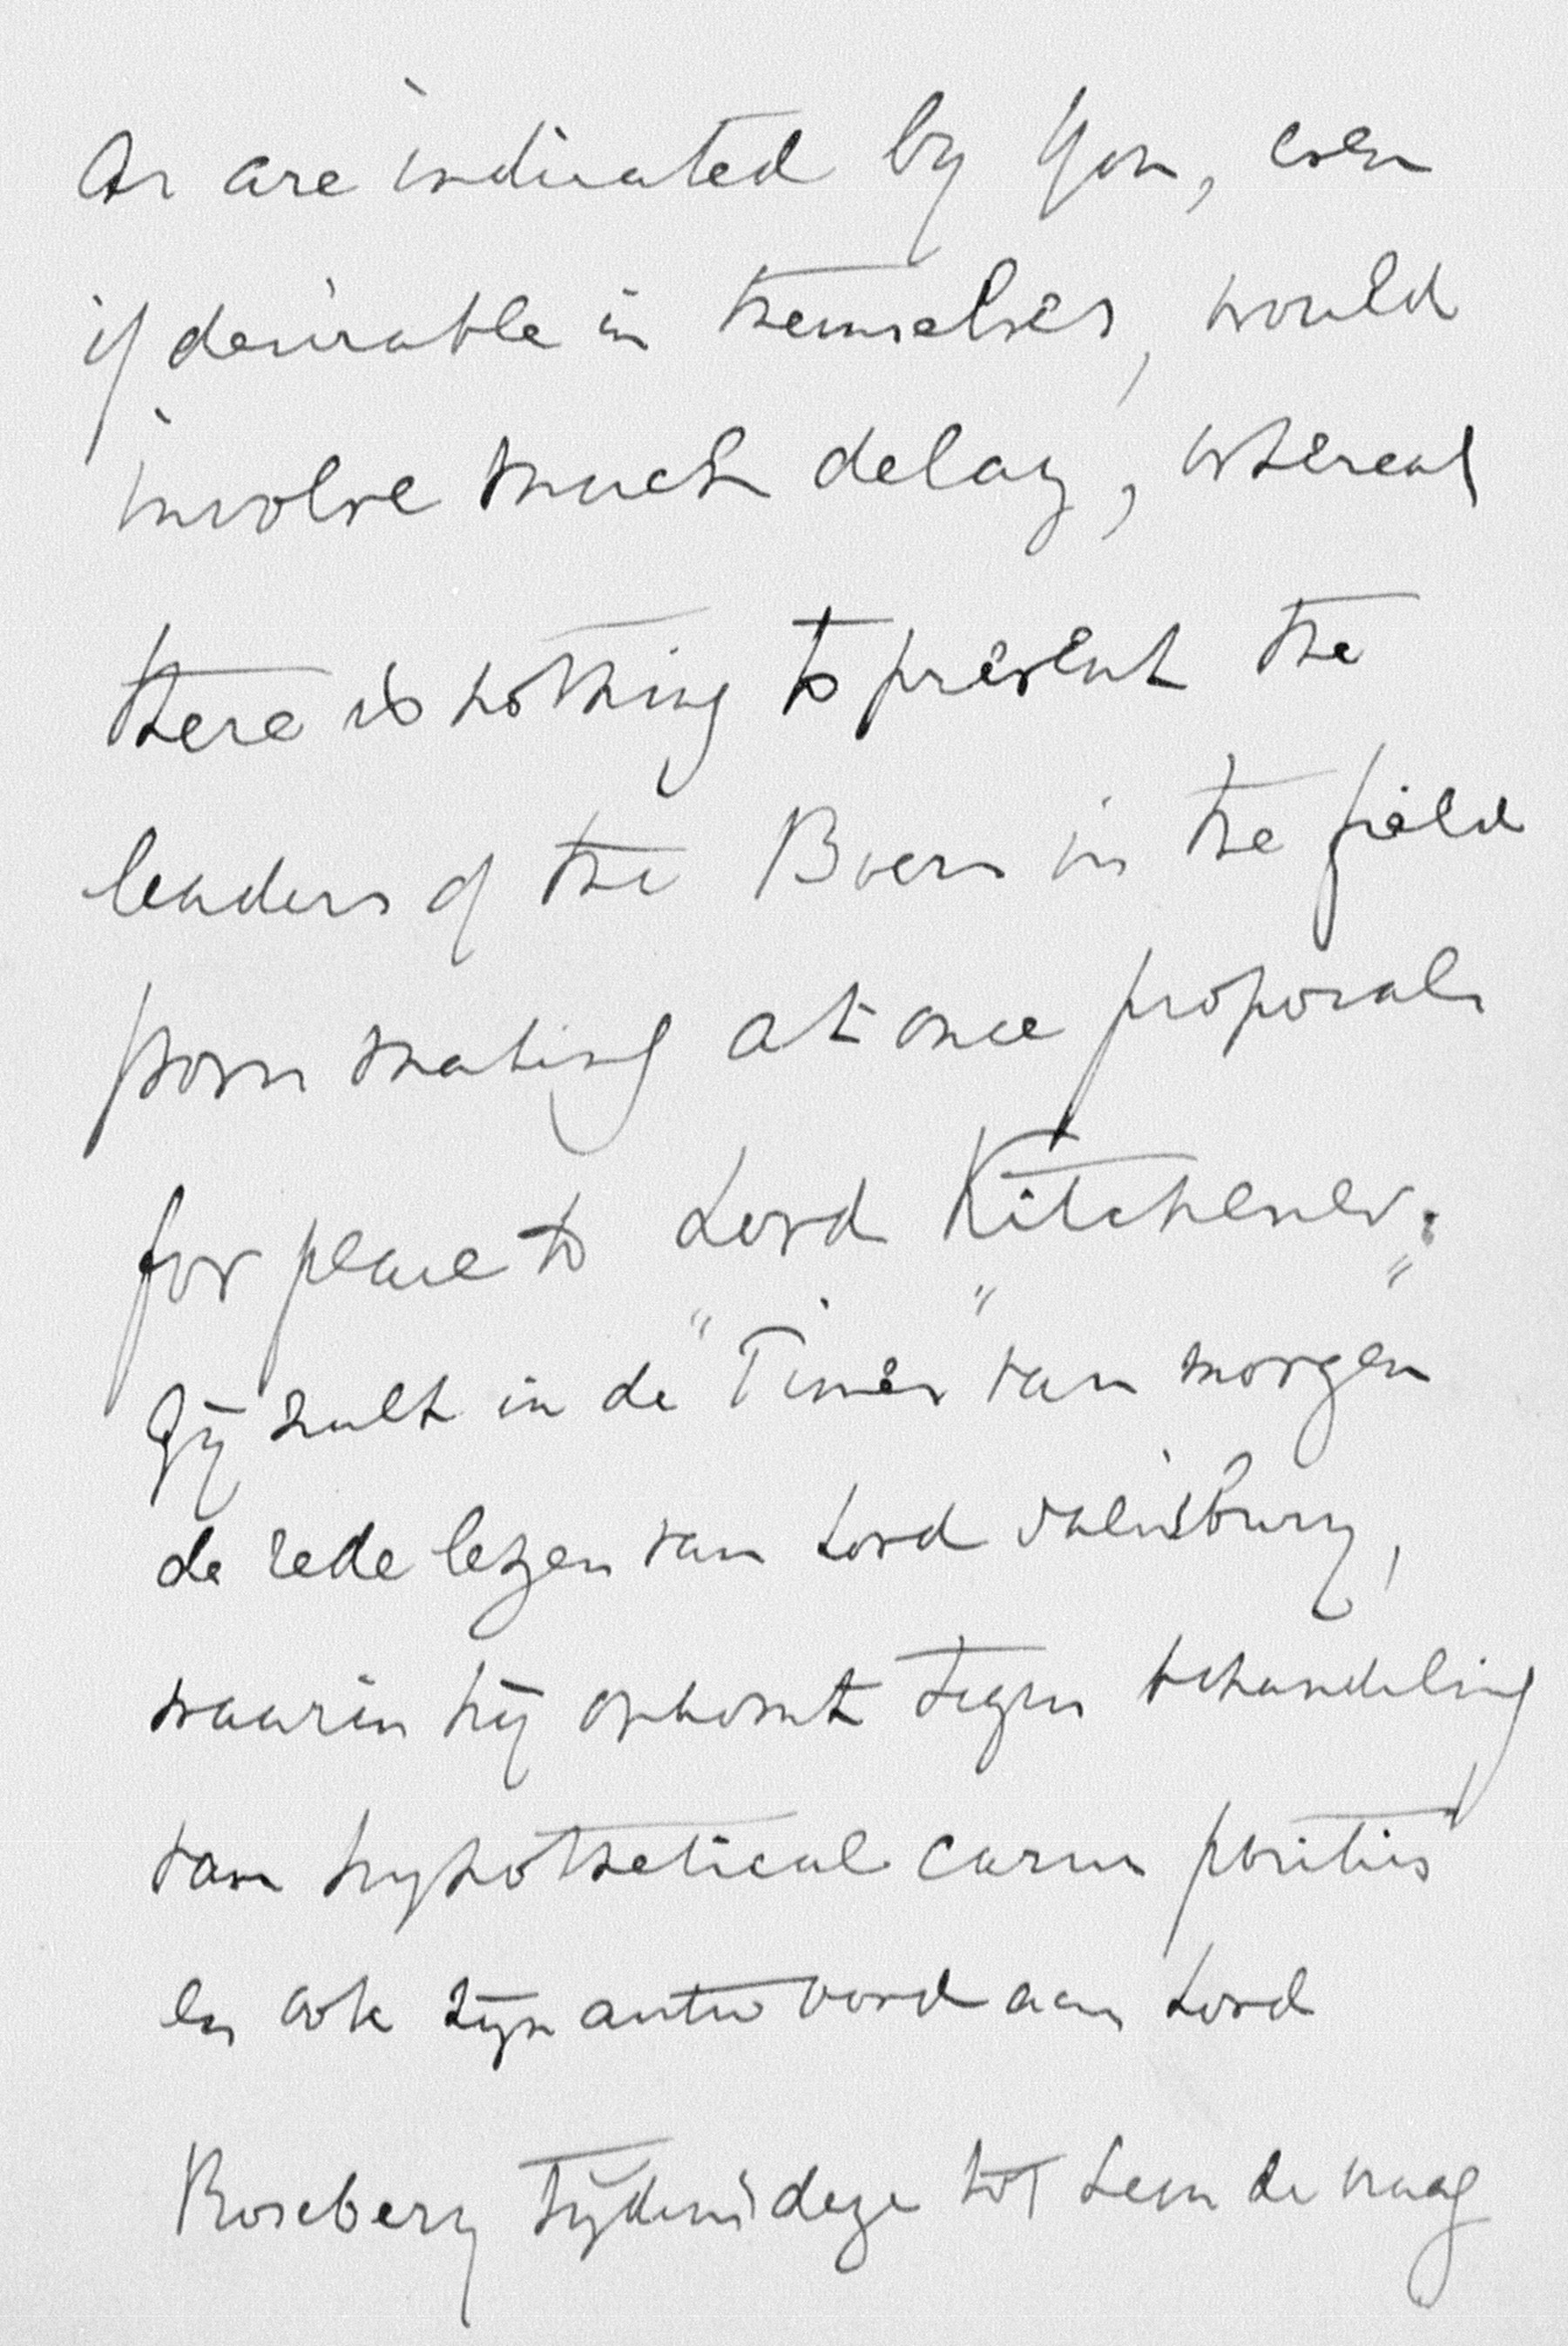 As are indicated by you, even
if desirable in themselves, would
involve much delay, whereas
there is nothing to prevent the
leaders of the Boers in the field
from making at once proposals
for peace to Lord Kitchener."
Gij zult in de "Times" van morgen
de rede lezen van Lord Salisbury,
waarin hij opkomt tegen behandeling
van hypothetical casus positiis
en ook zijn antwoord aan Lord
Rosebery tijdens deze tot hem de vraag